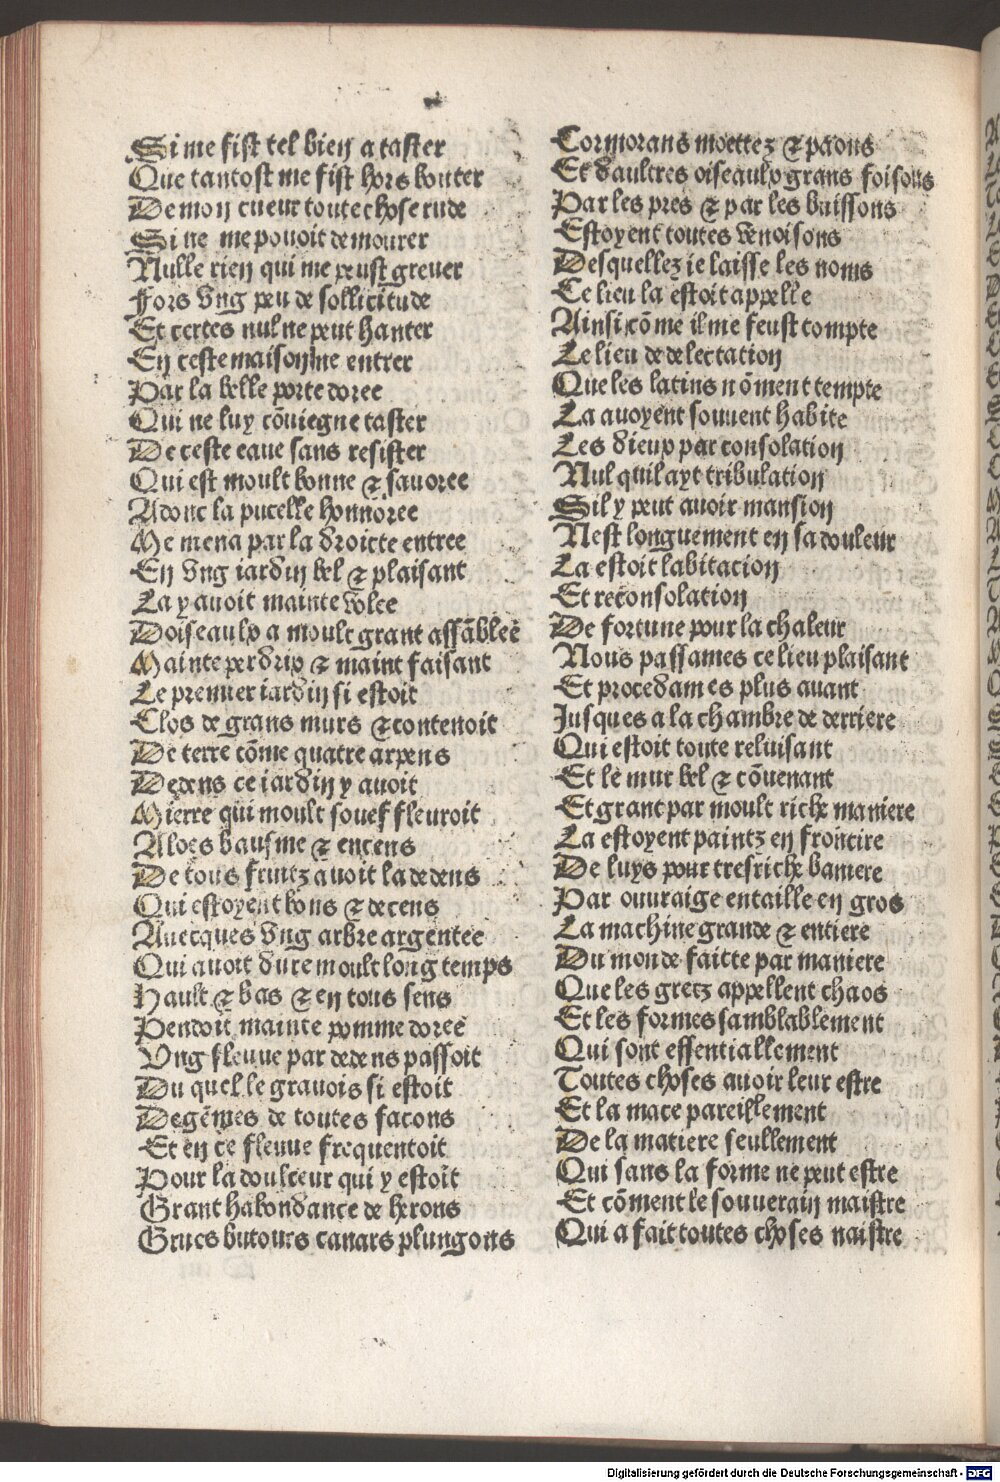 Si me fist tel bien a taster
Que tantost me fist hors bouter
De mon cueur toute chose rude
Si ne me pouoit demourer
Nulle rien qui me peust greuer
Fors vng peu de sollicitude
Et certes nul ne peut hanter
En ceste maison ne entrer
Par la belle porte doree
Qui ne luy cõuiegne taster
De ceste eaue sans resister
Qui est moult bonne & sauoree
Adonc la pucelle honnoree
Me mena par la droicte entree
En vng iardin bel & plaisant
La y auoit mainte volee
Doiseaulx a moult grant assãblee
Mainte perdrix & maint faisant
Le premier iardin si estoit
Clos de grans murs & contenoit
De terre cõme quatre arpens
Dedens ce iardin y auoit
Mierre qui moult souef fleuroit
Aloes bausme & encens
De tous fruitz auoit la dedens
Qui estoyent bons & decens
Auecques vng arbre argentee
Qui auoit dure moult long temps
Hault & bas & en tous sens
Pendoit mainte pomme doree
Vng fleuue par dedens passoit
Du quel le grauois si estoit
De gẽmes de toutes facons
Et en ce fleuue frequentoit
Pour la doulceur qui y estoit
Grant habondance de herons
Grues butours canars plungons
Cormorans moettez & paons
Et daultres oiseaulx grans foisons
Par les pres & par les buissons
Estoyent toutes venoisons
Desquellez ie laisse les noms
Ce lieu la estoit appelle
Ainsi cõme il me feust compte
Le lieu de delectation
Que les latins nõment tempte
La auoyent souuent habite
Les dieux par consolation
Nul quil ayt tribulation
Sil y peut auoir mansion
Nest longuement en sa douleur
La estoit labitacion
Et reconsolation
De fortune pour la chaleur
Nous passames ce lieu plaisant
Et procedames plus auant
Jusques a la chambre de derriere
Qui estoit toute reluisant
Et le mur bel & cõuenant
Et grant par moult riche maniere
La estoyent paintz en frontire
De luys pour tresriche baniere
Par ouuraige entaille en gros
La machine grande & entiere
Du monde faitte par maniere
Que les gretz appellent chaos
Et les formes samblablement
Qui sont essentiallement
Toutes choses auoir leur estre
Et la mace pareillement
De la matiere seullement
Qui sans la forme ne peut estre
Et cõment le souuerain maistre
Qui a fait toutes choses naistre
Digitalisierung gefördert durch die Deutsche Forschungsgemeinschaft - DFG